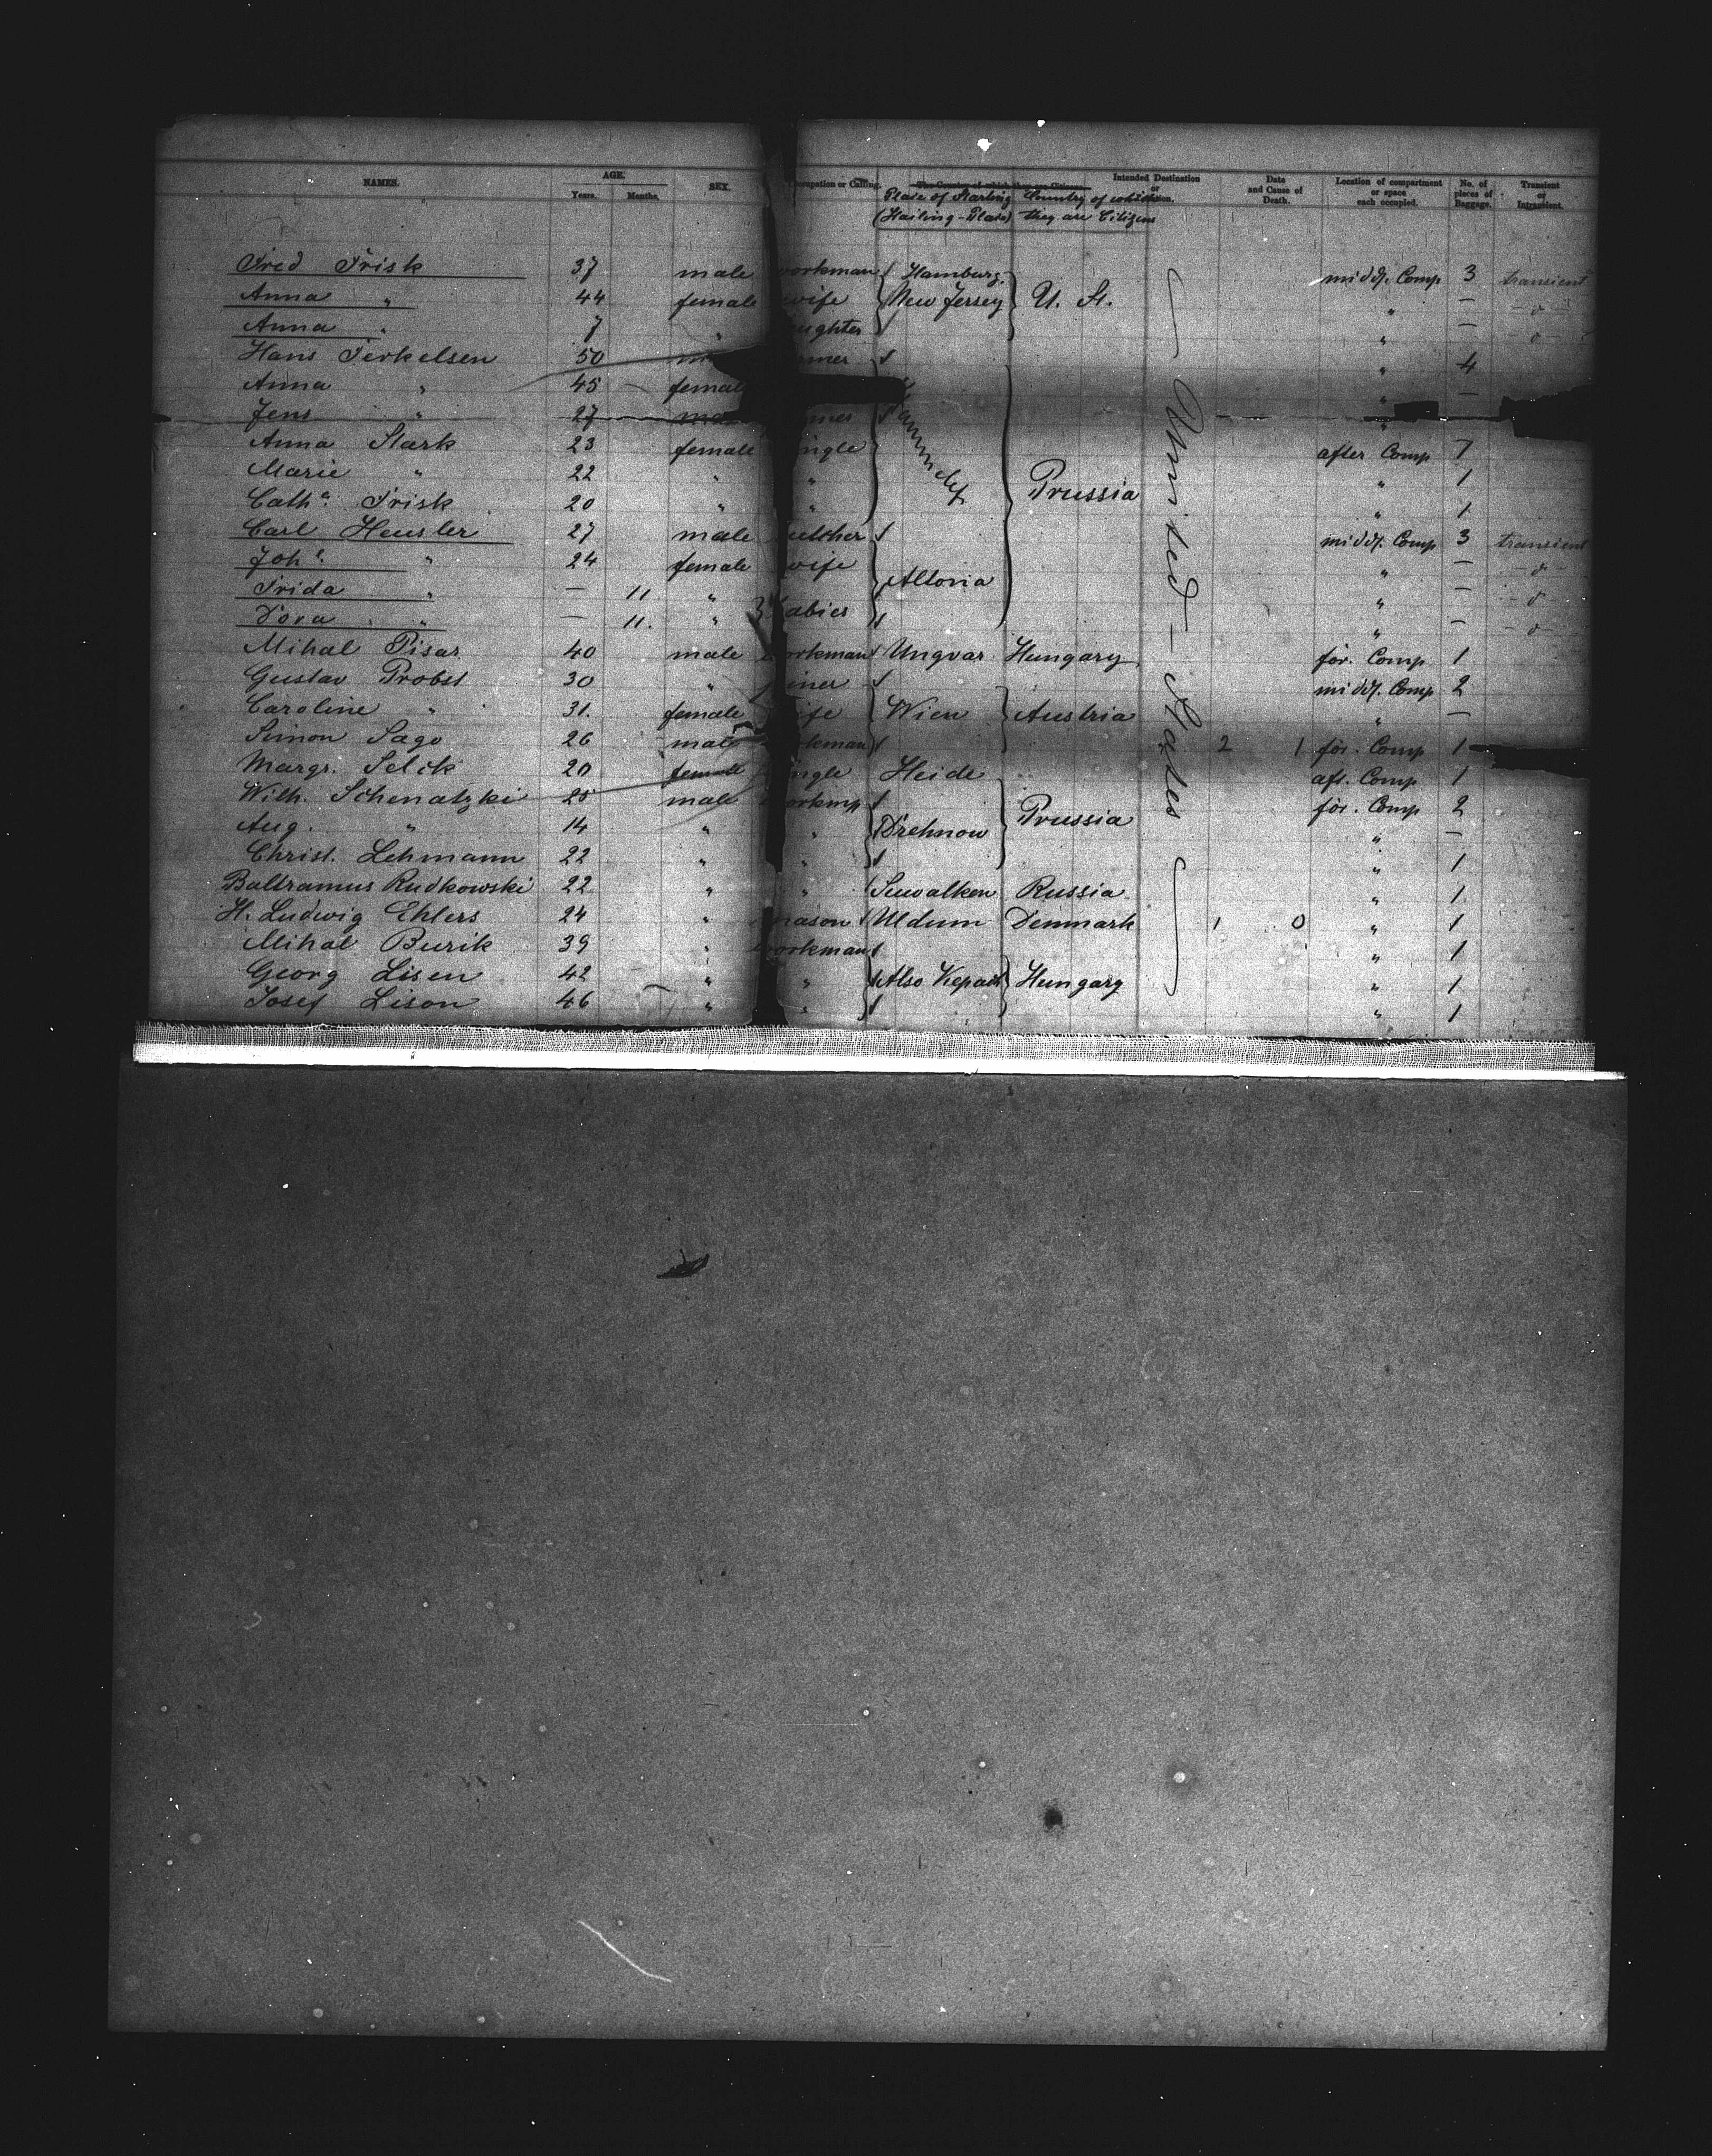 NAMES. AGE. SEX. Occupation or Calling. The Country of which they are Citizens. Intended Destination or Date and Cause of Death. Location of compartment or space each occupied. No. of pieces of Baggage. Transient or Intransient.
Years. Months. Place of Starting Country of which
(Hailing-Place) they are Citizens
Fred Frisk 37 male workman Hamburg midd. Comp 3 transient
Anna " 44 female wife New Jersey U. St. " — - o -
Anna " 7 " daughter " — - o -
Hans Terkelsen 50 " 4
Anna " 45 female " —
Jens " 27 "
Anna Stark 23 female single after Comp 7
Marie " 22 " " " 1
Cath.a Frisk 20 " " Prussia " 1
Carl Heusler 27 male butcher midd. Comp 3 transient
Joh.a " 24 female wife Altona " — - o -
Frida " — 11 " " - o -
Dora " — 11. " babies " — - o -
Mihal Pisar 40 male workman Ungvar Hungary for. Comp 1
Gustav Probst 30 " midd. Comp 2
Caroline " 31. female wife Wien Austria " —
Simon Sago 26 male workman 2 1 for. Comp 1
Margr. Selck 20 female single Heide aft. Comp 1
Wilh. Schenatzki 25 male workm for. Comp 2
Aug. " 14 " " Drehnow Prussia " —
Christ. Lehmann 22 " " " 1
Baltramus Rudkowski 22 " " Suwalken Russia " 1
H. Ludwig Ehlers 24 " mason Uldum Denmark 1 0 " 1
Mihal Burik 39 " workman " 1
Georg Lisen 42 " " Also Hungary " 1
Josef Lison 46 " " " 1
United-States